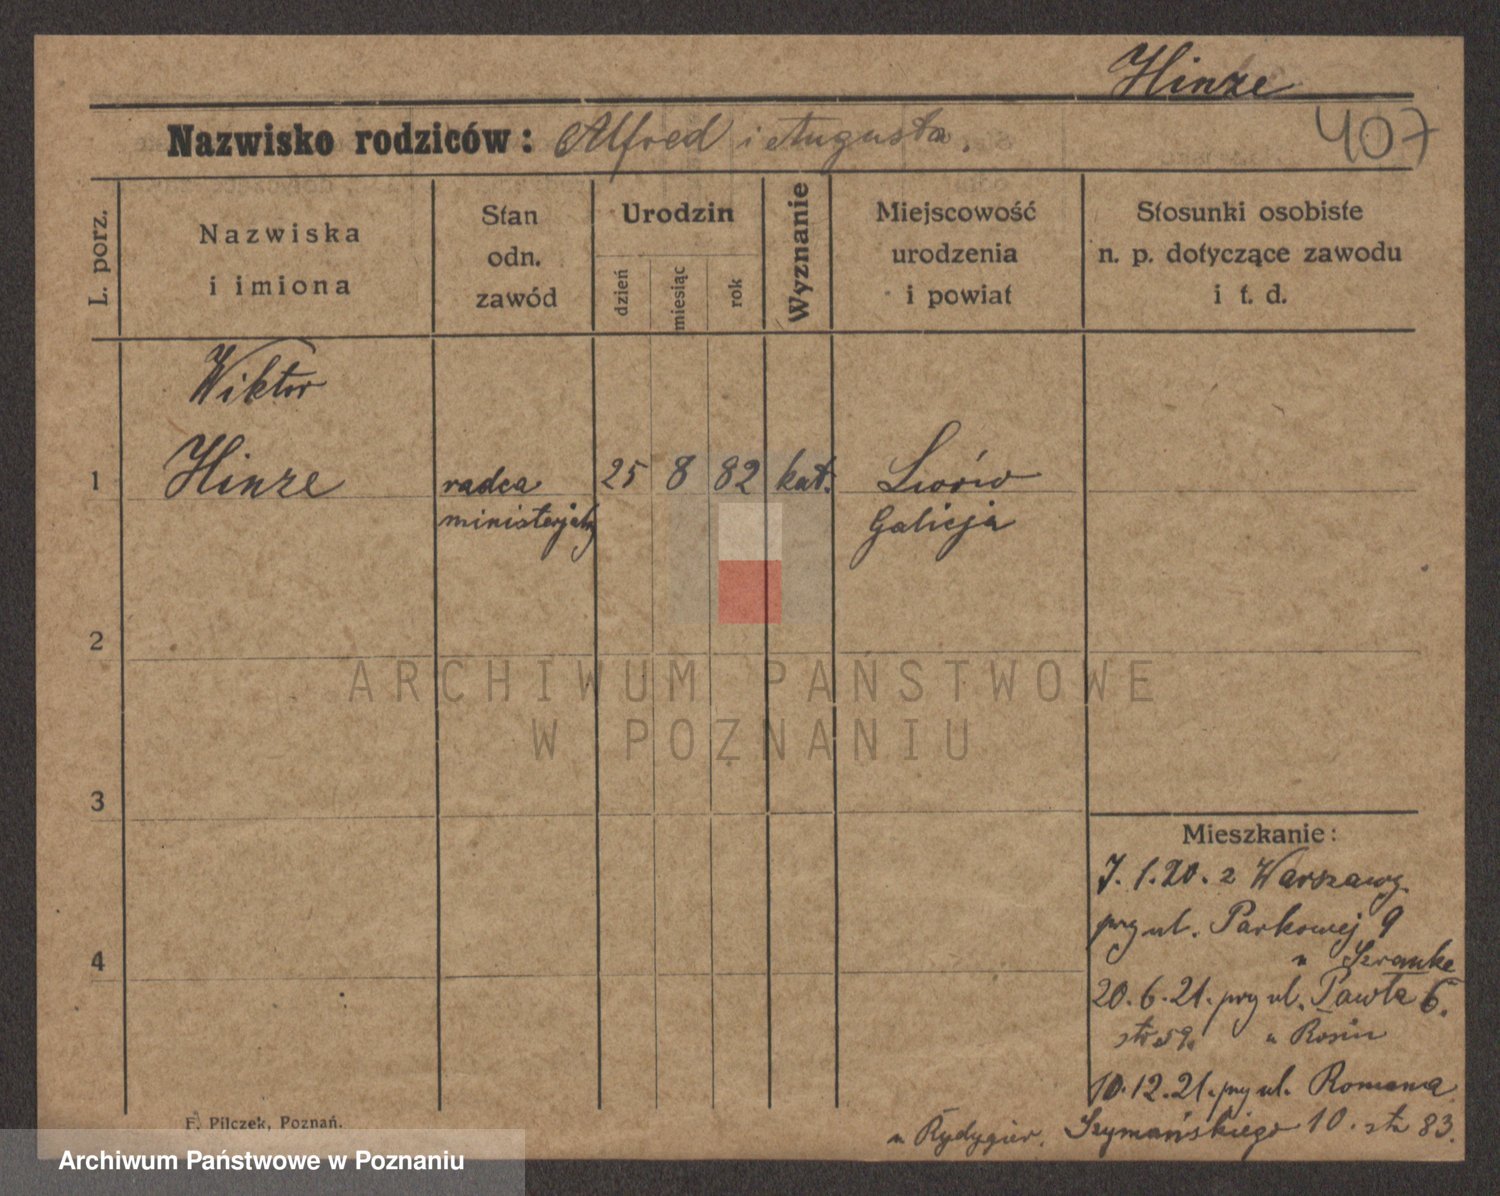 Hinze
Nazwisko rodziców: Alfred i Augusta.
407
L. porz.
Nazwiska
i imiona
Stan
odn.
zawód
Urodzin
dzień
miesiąc
rok
Wyznanie
Miejscowość
urodzenia
i powiat
Stosunki osobiste
n. p. dotyczące zawodu
i t. d.
Wiktor
1 Hinze radca 25 8 82 kat. Lwów
ministerjalny Galicja
2
ARCHIWUM PAŃSTWOWE
W POZNANIU
3
Mieszkanie:
7.1.20. z Warszawy.
przy ul. Parkowej 9
u Szranke
4
20.6.21. przy ul. Pawła 6.
str 59. u Rosin
10.12.21. przy ul. Romana
Szymańskiego 10. str 83.
u Rydygier.
F. Pilczek, Poznań.
Archiwum Państwowe w Poznaniu